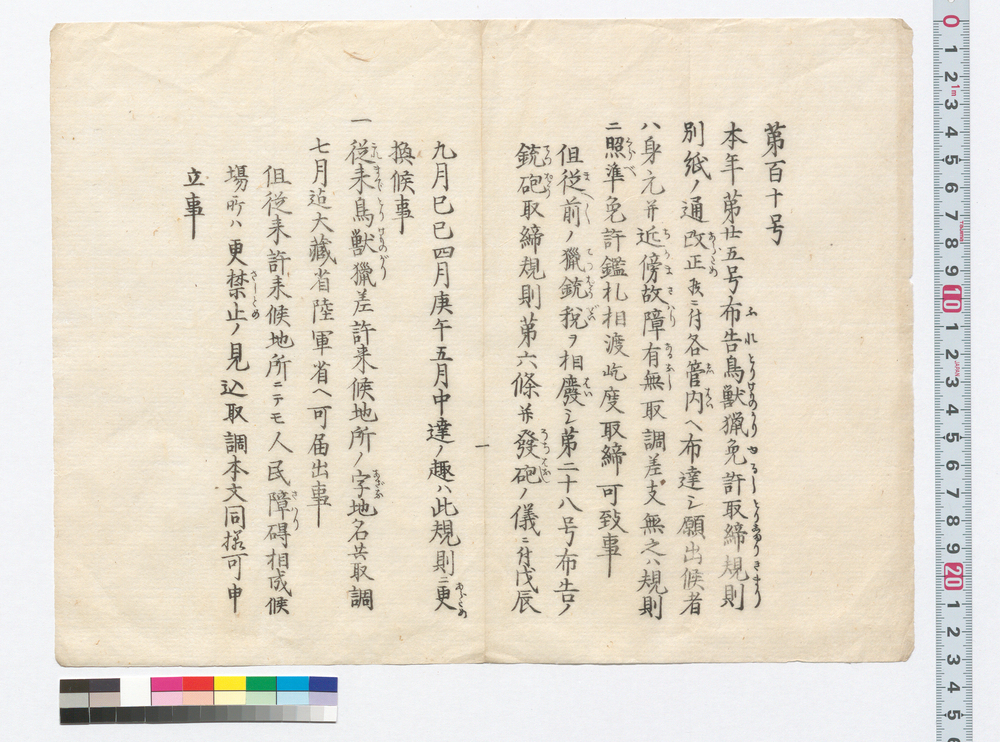 第百十号
本年第廿五号布告鳥獣猟免許取締規則
別紙ノ通改正候ニ付各管内ヘ布達シ願出候者
ハ身元并近傍故障有無取調差支無之ハ規則
ニ照準免許鑑札相渡屹度取締可致事
但従前ノ猟銃税ヲ相廃シ第二十八号布告ノ
銃砲取締規則第六條并發砲ノ儀ニ付戊辰
一
九月巳巳四月庚午五月中達ノ趣ハ此規則ニ更
換候事
一 従来鳥獣猟差許来候地所ノ字地名共取調
七月迠大藏省陸軍省ヘ可届出事
但従来許来候地所ニテモ人民障碍相成候
場所ハ更禁止ノ見込取調本文同様可申
立事